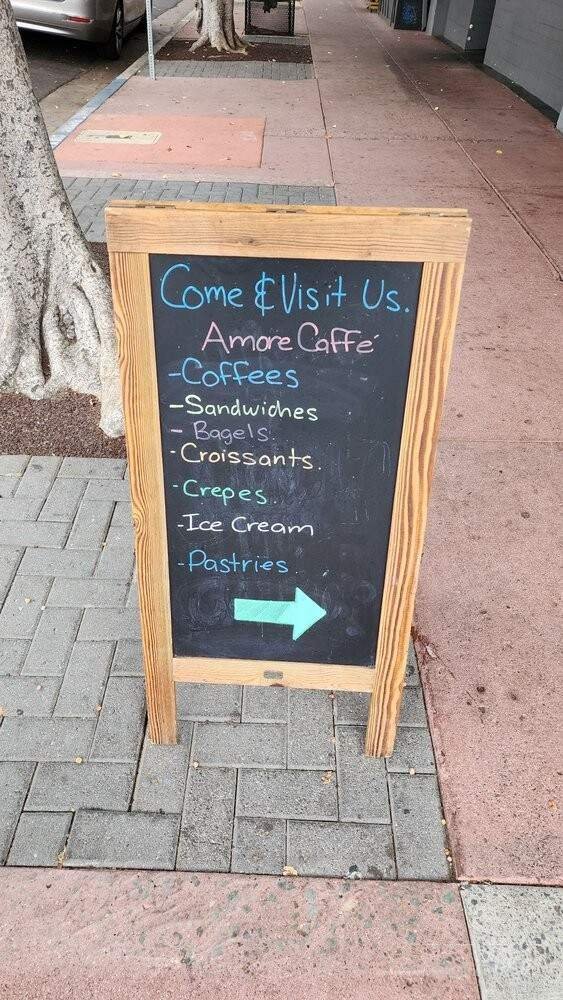 Come & Visit Us.
Amore Caffé
-Coffees
-Sandwiches
- Bagels.
-Croissants.
-Crepes.
-Ice Cream
-Pastries.